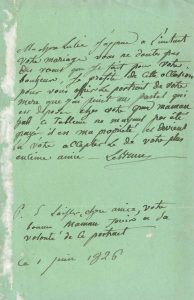 Ma chère Lalie J'apprend à l'instant
votre mariage vous ne doutez pas
des vœux que je fait pour votre
bonheurs, Je profite de cette occasion
pour vous offrir le portrait de votre
mère que j'ai peint au pastel qui
est déposé chez votre grand maman
ce tableau ne m'ayant pas été
payé il est ma propriété, je
vous a accepter de votre plus
entienne amie.
P. S Laissez, chère amie, votre
bonne Maman jouir a sa
volonté de ce portrait
ce 1 juin 1826